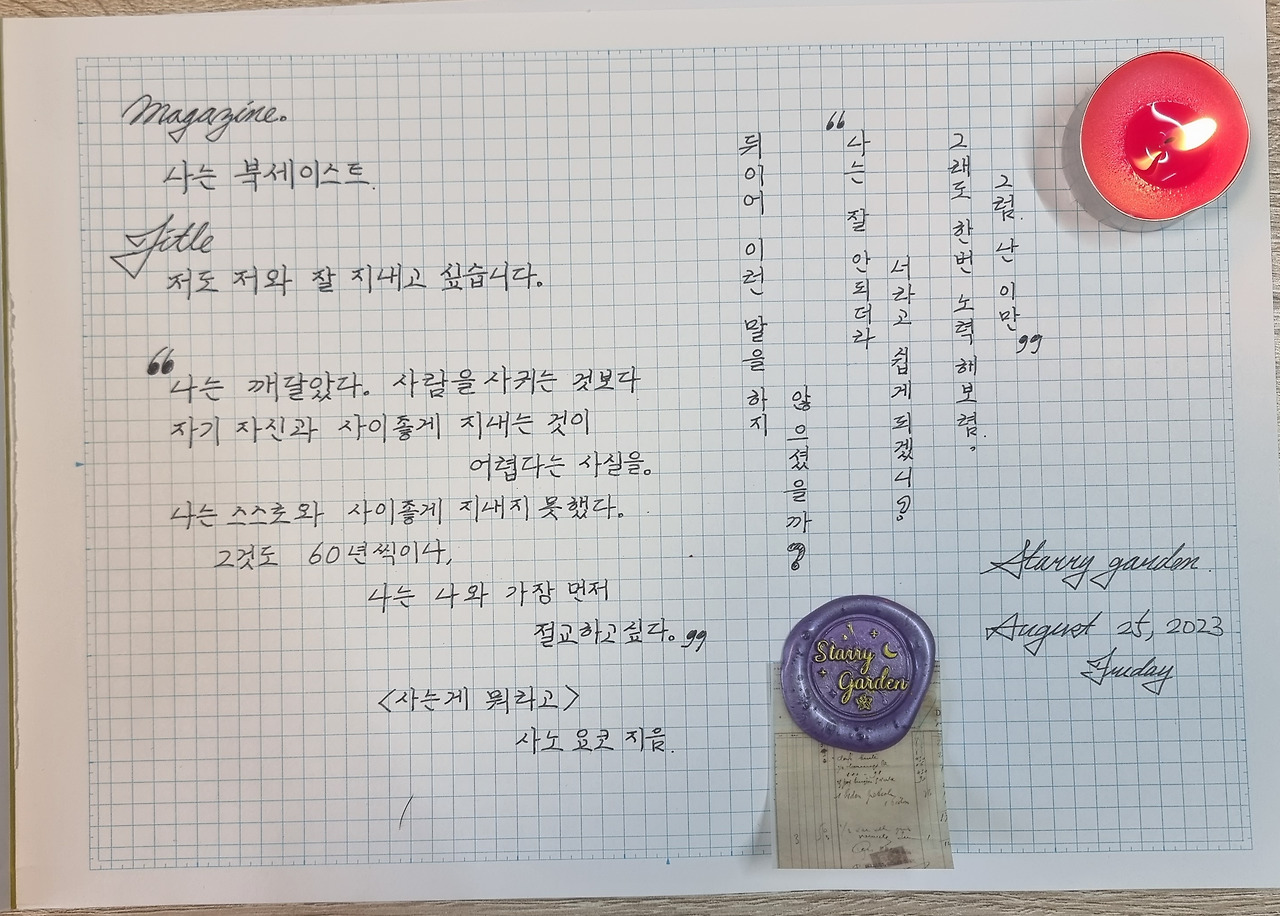 Magazine.
나는 북세이스트.
Title
저도 저와 잘 지내고 싶습니다.
“나는 깨달았다. 사람을 사귀는 것보다
자기 자신과 사이좋게 지내는 것이
어렵다는 사실을.
나는 스스로와 사이좋게 지내지 못했다.
그것도 60년씩이나,
나는 나와 가장 먼저
절교하고싶다.”
<사는게 뭐라고>
사노 요코 지음.
뒤이어 이런 말을 하지
않으셨을까?
“나는 잘 안되더라
너라고 쉽게 되겠니?
그래도 한번 노력해보렴.
그럼. 난 이만”
Starry garden.
August 25, 2023
Friday
Starry
Garden